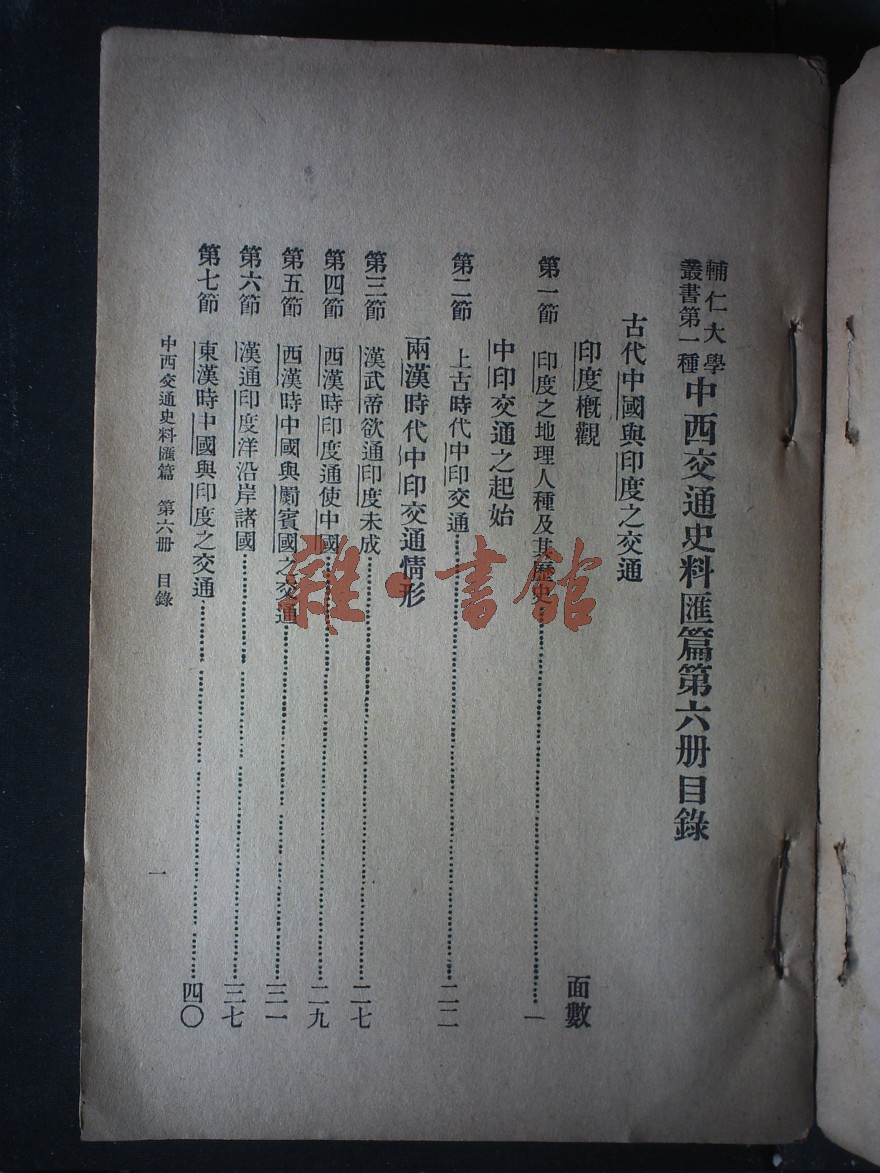 輔仁大學
叢書第一種
中西交通史料匯篇第六册目錄
古代中國與印度之交通
印度槪觀
面數
第一節 印度之地理人種及其歷史 一
中印交通之起始
第二節 上古時代中印交通 二二
兩漢時代中印交通情形
第三節 漢武帝欲通印度未成 二七
第四節 西漢時印度通使中國 二九
第五節 西漢時中國與罽賓國之交通 三一
第六節 漢通印度洋沿岸諸國 三七
第七節 東漢時中國與印度之交通 四〇
中西交通史料匯篇 第六册 目錄
一
雜·書館